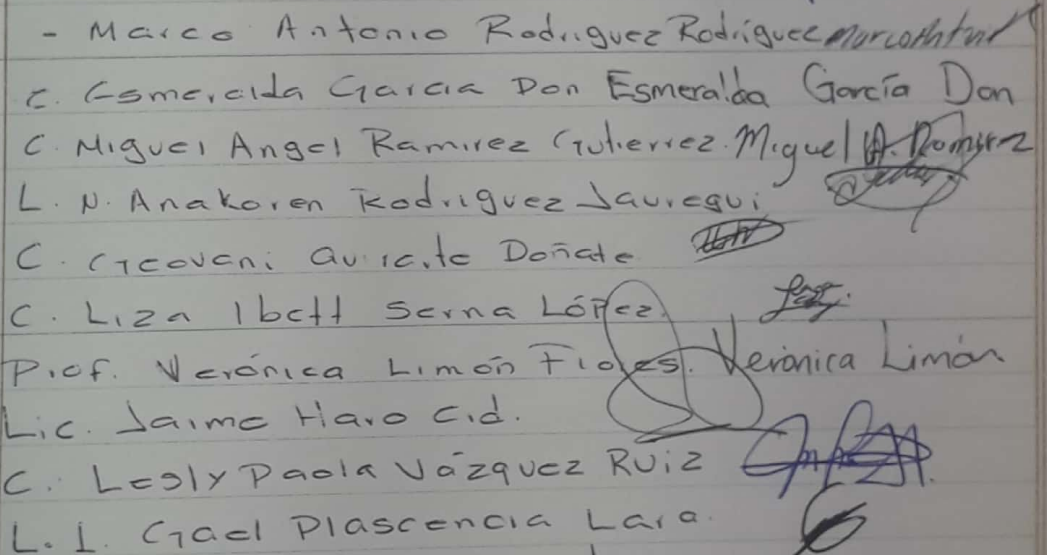 - Marco Antonio Rodriguez Rodríguez
C. Esmeralda Garcia Don Esmeralda García Don
C. Miguel Angel Ramirez Gutierrez. Miguel A. Ramirez
L. N. Anakaren Rodriguez Jauregui
C. Geovani Doñate
C. Liza Ibett Serna López.
Prof. Verónica Limón Flores. Verónica Limón
Lic. Jaime Haro Cid.
C. Lesly Paola Vázquez Ruiz
L. I. Gael Plascencia Lara.